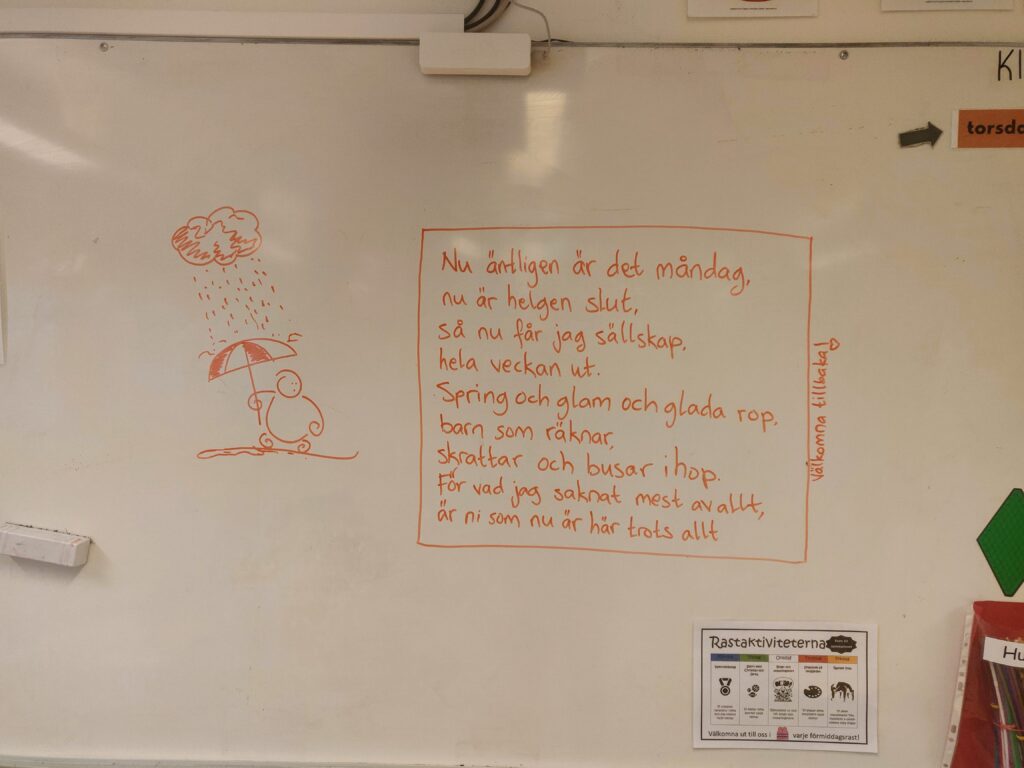 Kl
torsda
Nu äntligen är det måndag,
nu är helgen slut,
så nu får jag sällskap,
hela veckan ut.
Spring och glam och glada rop,
barn som räknar,
skrattar och busar ihop.
För vad jag saknat mest av allt,
är ni som nu är här trots allt
Välkomna tillbaka!
Rastaktiviteterna
Onsdag
Välkomna ut till oss i varje förmiddagsrast!
Hu